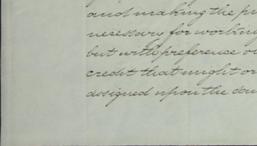 and making the
necessary for working
but with preference
credit that might
assigned upon the